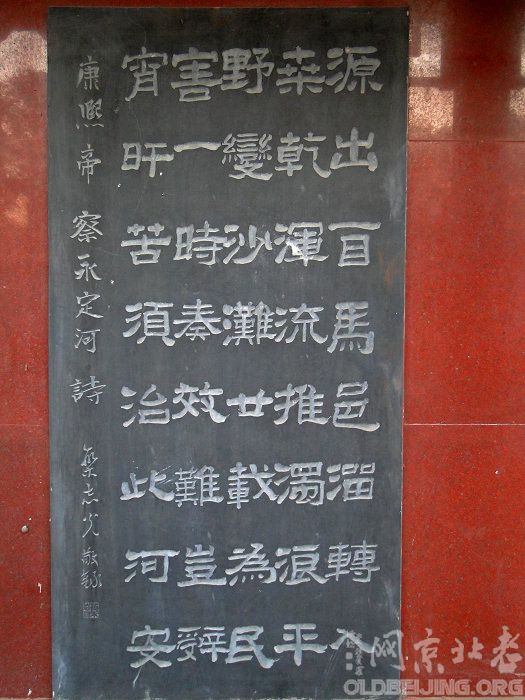 源出自馬邑溜轉入
桒乾渾流推濁浪平
野變沙灘廿載為民
害一時奏效難豈辤
宵旰苦須治此河安
康熙帝 察永定河 詩 志光敬錄
网京北老
OLDBEIJING.ORG